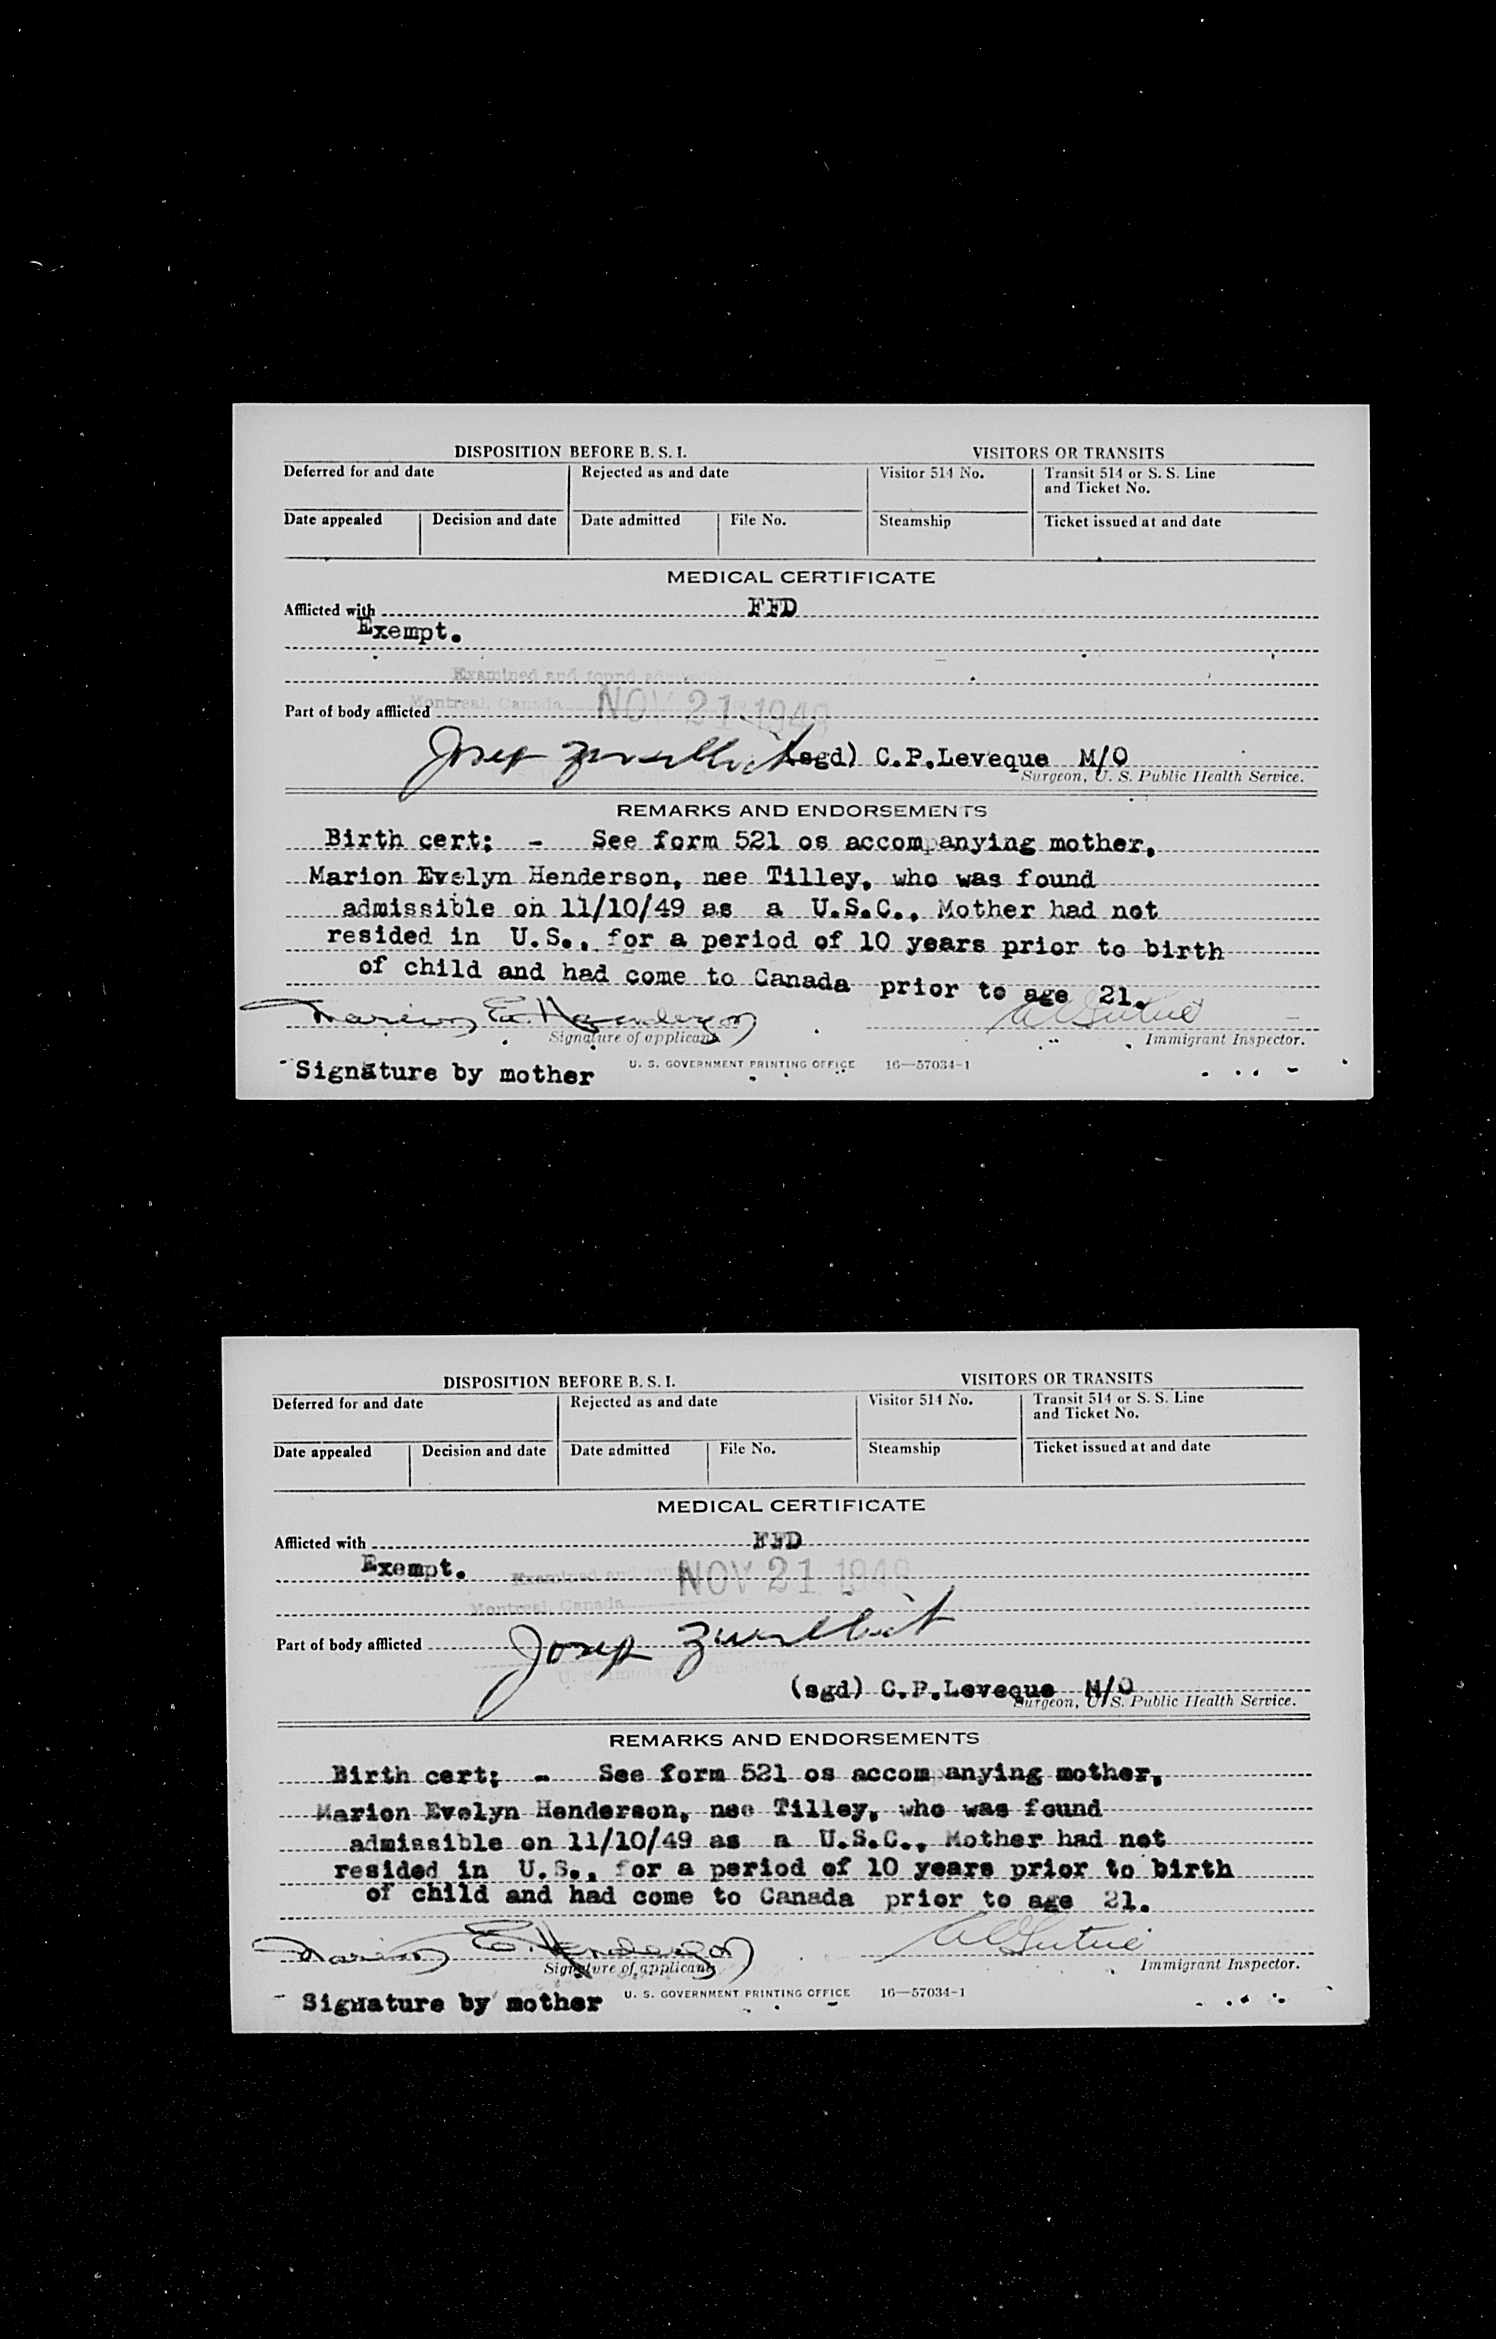 DISPOSITION BEFORE B. S. I. VISITORS OR TRANSITS
Deferred for and date Rejected as and date Visitor 514 No. Transit 514 or S. S. Line
and Ticket No.
Date appealed Decision and date Date admitted File No. Steamship Ticket issued at and date
MEDICAL CERTIFICATE
Afflicted with FFD
Exempt.
Examined and found
Montreal, Canada
NOV 21 1949
Part of body afflicted
Josep
sgd) C.P.Leveque M/O
Surgeon, U. S. Public Health Service.
REMARKS AND ENDORSEMENTS
Birth cert; - See form 521 os accompanying mother,
Marion Evelyn Henderson, nee Tilley, who was found
admissible on 11/10/49 as a U.S.C., Mother had not
resided in U.S., for a period of 10 years prior to birth
of child and had come to Canada prior to age 21.
Marion E. Henderson
Signature of applicant Immigrant Inspector.
Signature by mother U. S. GOVERNMENT PRINTING OFFICE 16—57034-1
DISPOSITION BEFORE B. S. I. VISITORS OR TRANSITS
Deferred for and date Rejected as and date Visitor 514 No. Transit 514 or S. S. Line
and Ticket No.
Date appealed Decision and date Date admitted File No. Steamship Ticket issued at and date
MEDICAL CERTIFICATE
Afflicted with FFD
Exempt.
Examined and
NOV 21 1949
Montreal, Canada
Part of body afflicted
Josep
(sgd) C.P.Leveque M/O
Surgeon, U. S. Public Health Service.
REMARKS AND ENDORSEMENTS
Birth cert; - See form 521 os accompanying mother,
Marion Evelyn Henderson, nee Tilley, who was found
admissible on 11/10/49 as a U.S.C., Mother had not
resided in U.S., for a period of 10 years prior to birth
of child and had come to Canada prior to age 21.
Marion E. Henderson
Signature of applicant Immigrant Inspector.
Signature by mother U. S. GOVERNMENT PRINTING OFFICE 16—57034-1